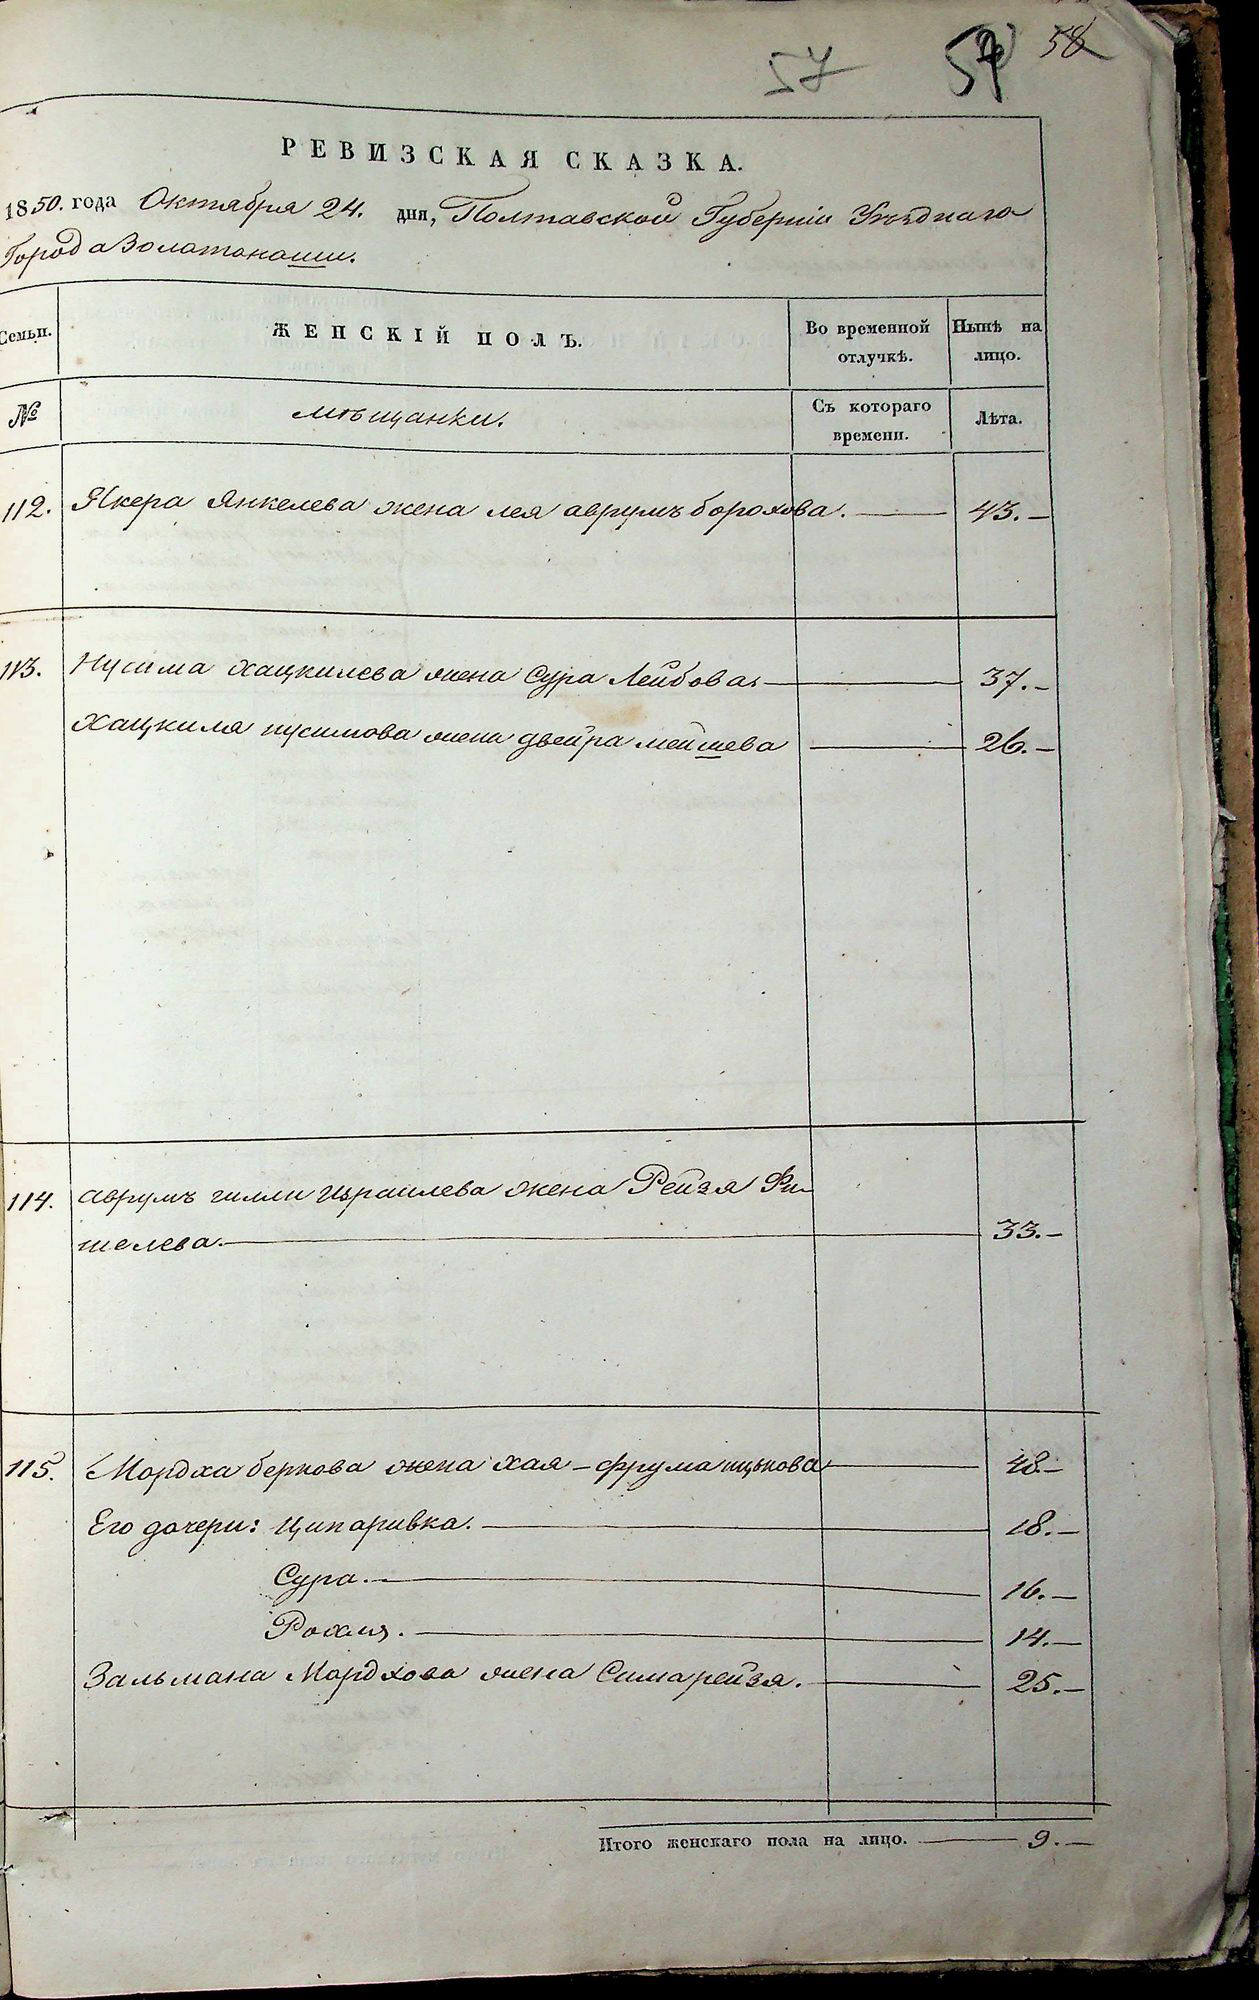 57 57 58
РЕВИЗСКАЯ СКАЗКА.
1850. года Октября 24. дня, Полтавской Губерніи Уѣзднаго
Города Золотоноши.
Семьи. ЖЕНСКІЙ ПОЛЪ. Во временной отлучкѣ. Нынѣ на лицо.
№ мѣщанки. Съ котораго времени. Лѣта.
112. Якера Янкелева жена лея аврумъ борохова. 43.
113. Нусима хацкилева жена Сура Лейбова. 37.
Хацкиля нусимова жена двейра мейшева 26.
114. аврумъ гилли израилева жена Рейзя Фи-
шелева. 33.
115. Мордха беркова жена хая-фрума ицькова 48.
Его дочери: Ципаривка. 18.
Сура. 16.
Рохля. 14.
Зальмана Мордхова жена Симарейзя. 25.
Итого женскаго пола на лицо. 9.